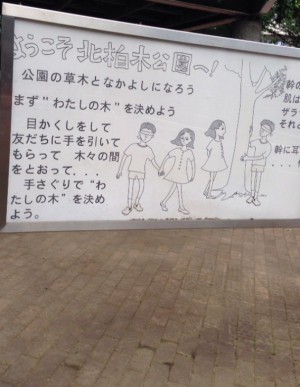 ようこそ北柏木公園へ!
公園の草木となかよしになろう
まず"わたしの木"を決めよう
目かくしをして
友だちに手を引いて
もらって 木々の間
をとおって...
手さぐりで"わ
たしの木"を決め
よう。
幹の
肌は
ザラ
それ
幹に耳